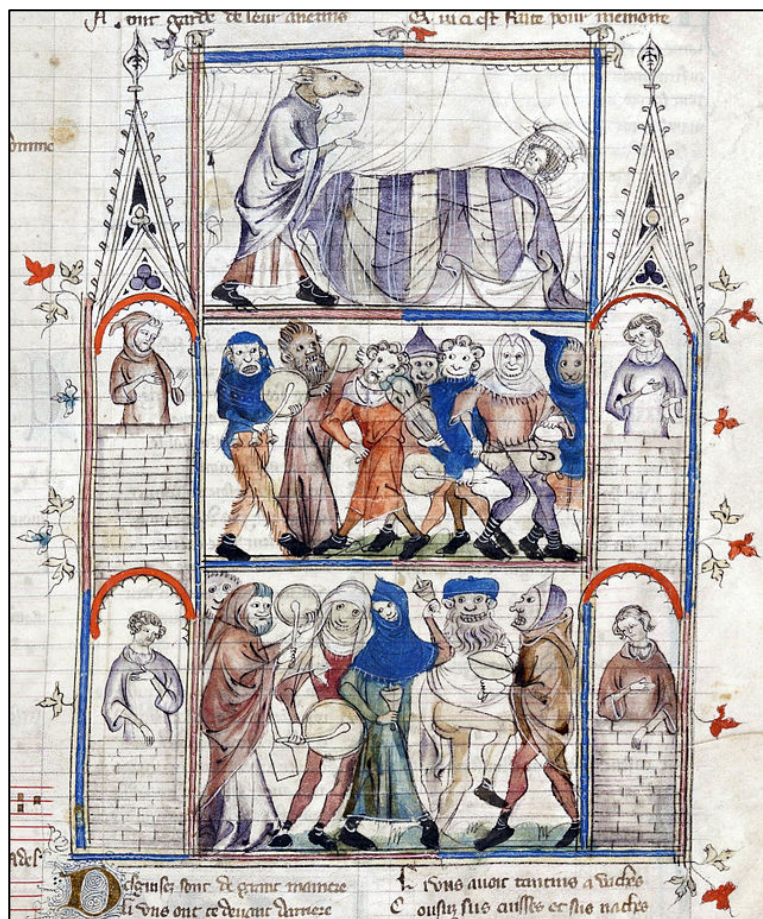 ont garde de leur anemis
Qui ci est faite pour memoire
Desguisez sont de grant maniere
Li uns ont ce devant darriere
Li uns avoit tantins a vaches
Cousuz sus cuisses et sus naches